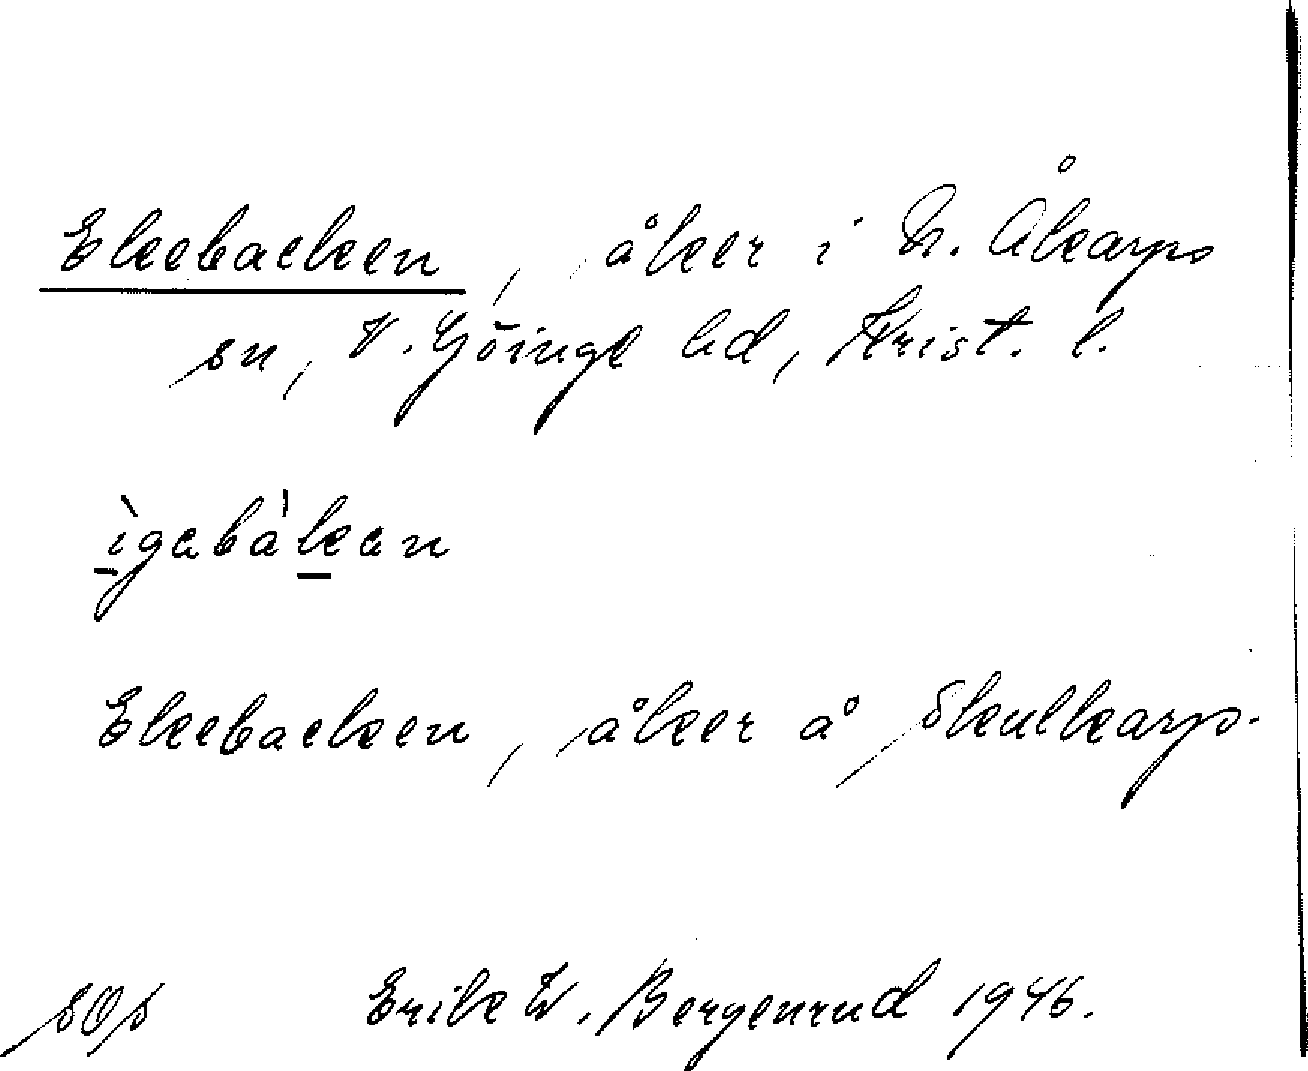 Ekebacken, åker i N. Åkarps
sn, V. Göinge hd, Krist. l.
ìgabà'kan
Ekebacken, åker å Skulkarp.
SOS Erik W. Bergenrud 1946.